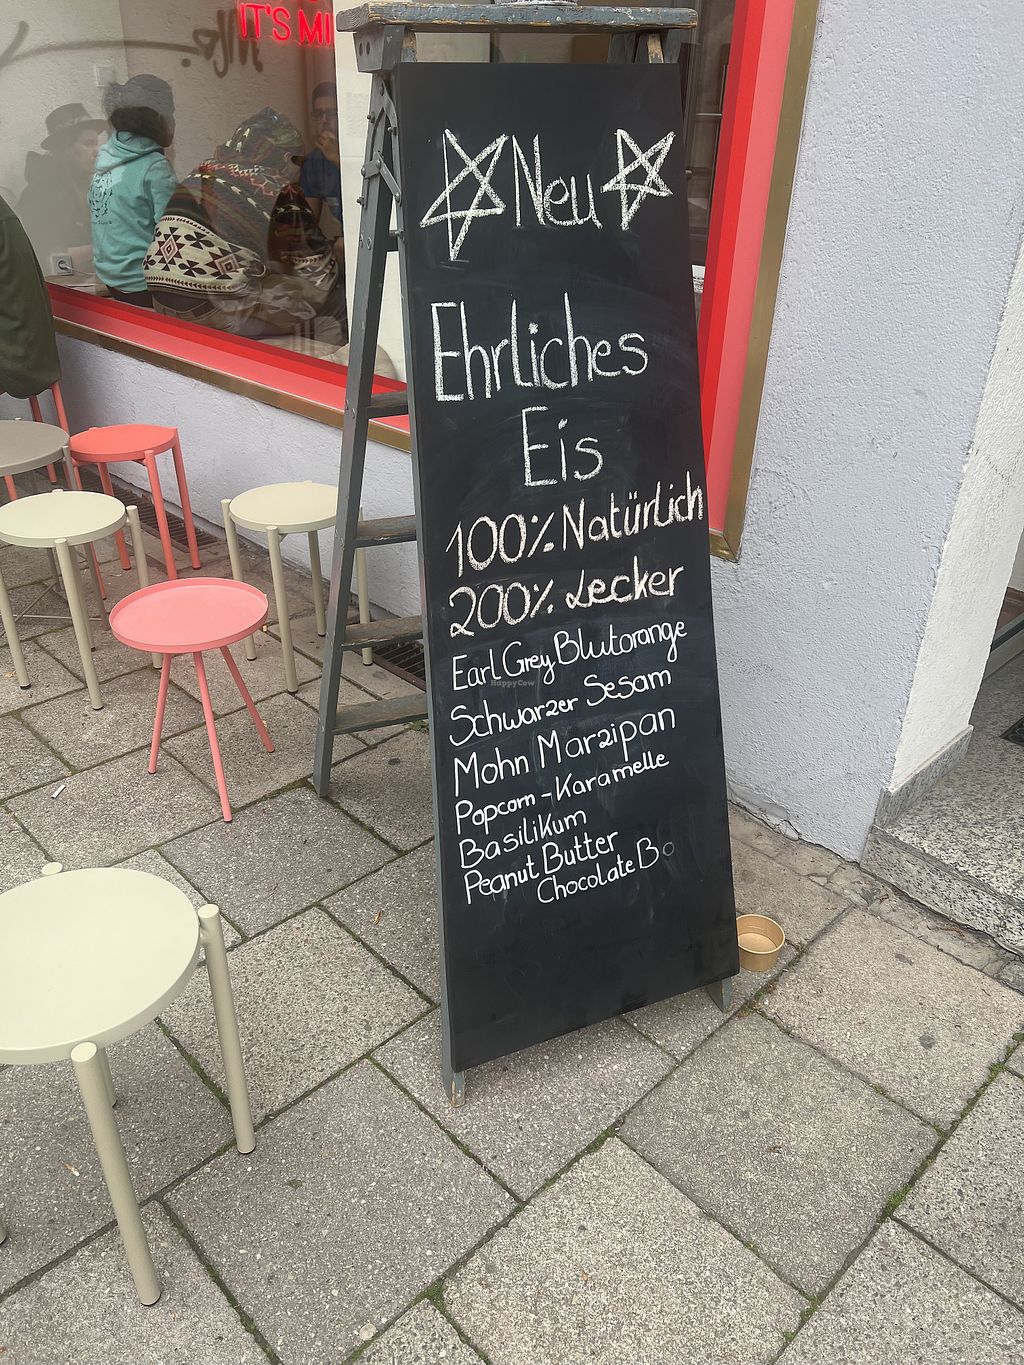 IT'S MI
Neu
Ehrliches
Eis
100% Natürlich
200% Lecker
Earl Grey Blutorange
HappyCow
Schwarzer Sesam
Mohn Marzipan
Popcorn-Karamelle
Basilikum
Peanut Butter
Chocolate Bo